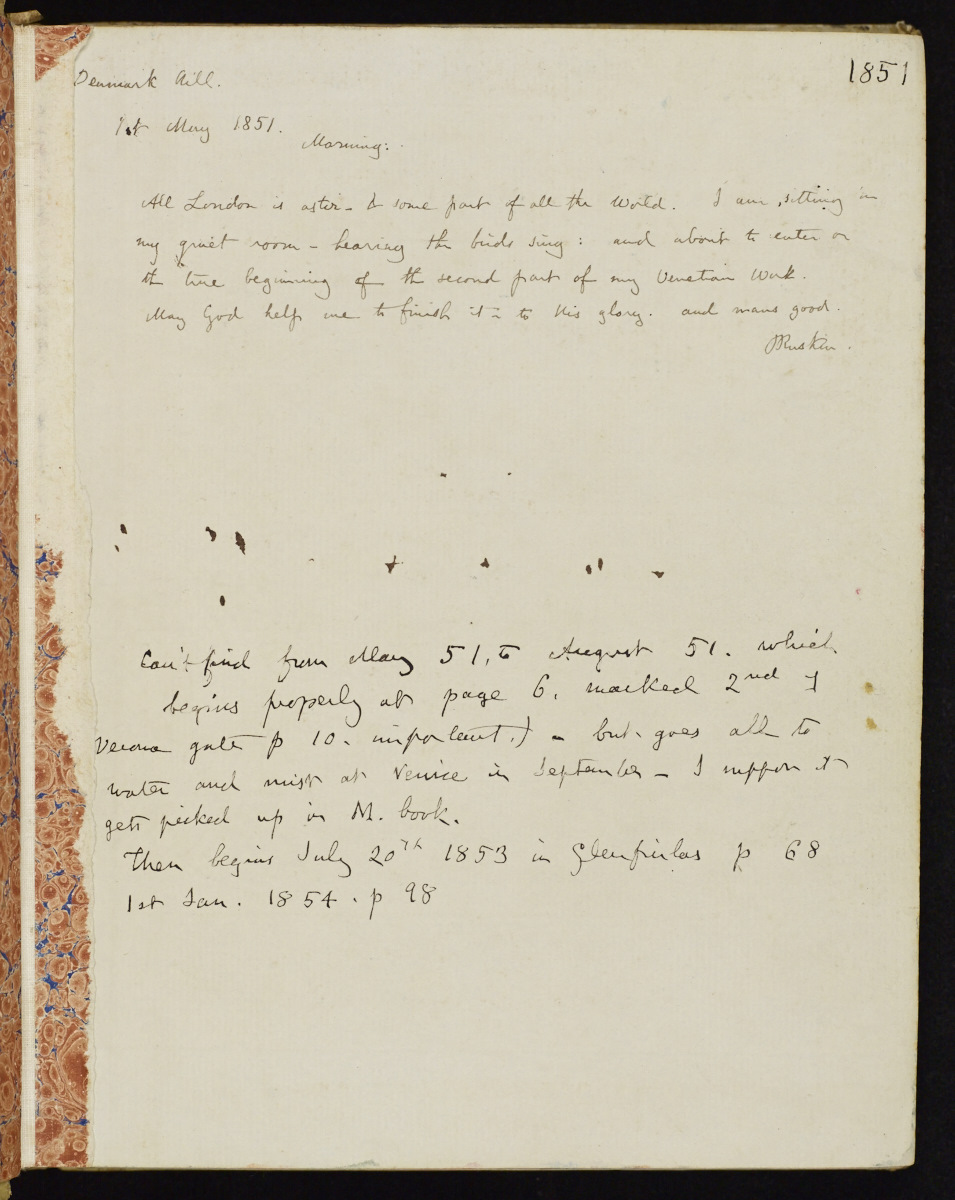 1851
Denmark Hill.
1st May 1851.
Morning:
All London is astir - & some part of all the world. I am sitting in
my quiet room - hearing the birds sing: and about to enter on
the true beginning of the second part of my Venetian Work.
May God help me to finish it - to His glory. and mans good.
JRuskin.
Can't find from May 51, to August 51. which
begins properly at page 6. marked 2nd of
Verona gates p 10. important.) - but goes all to
water and mist at Venice in September - I suppose it
gets picked up in M. book.
Then begins July 20th 1853 in Glenfinlas p 68
1st Jan. 1854. p 98